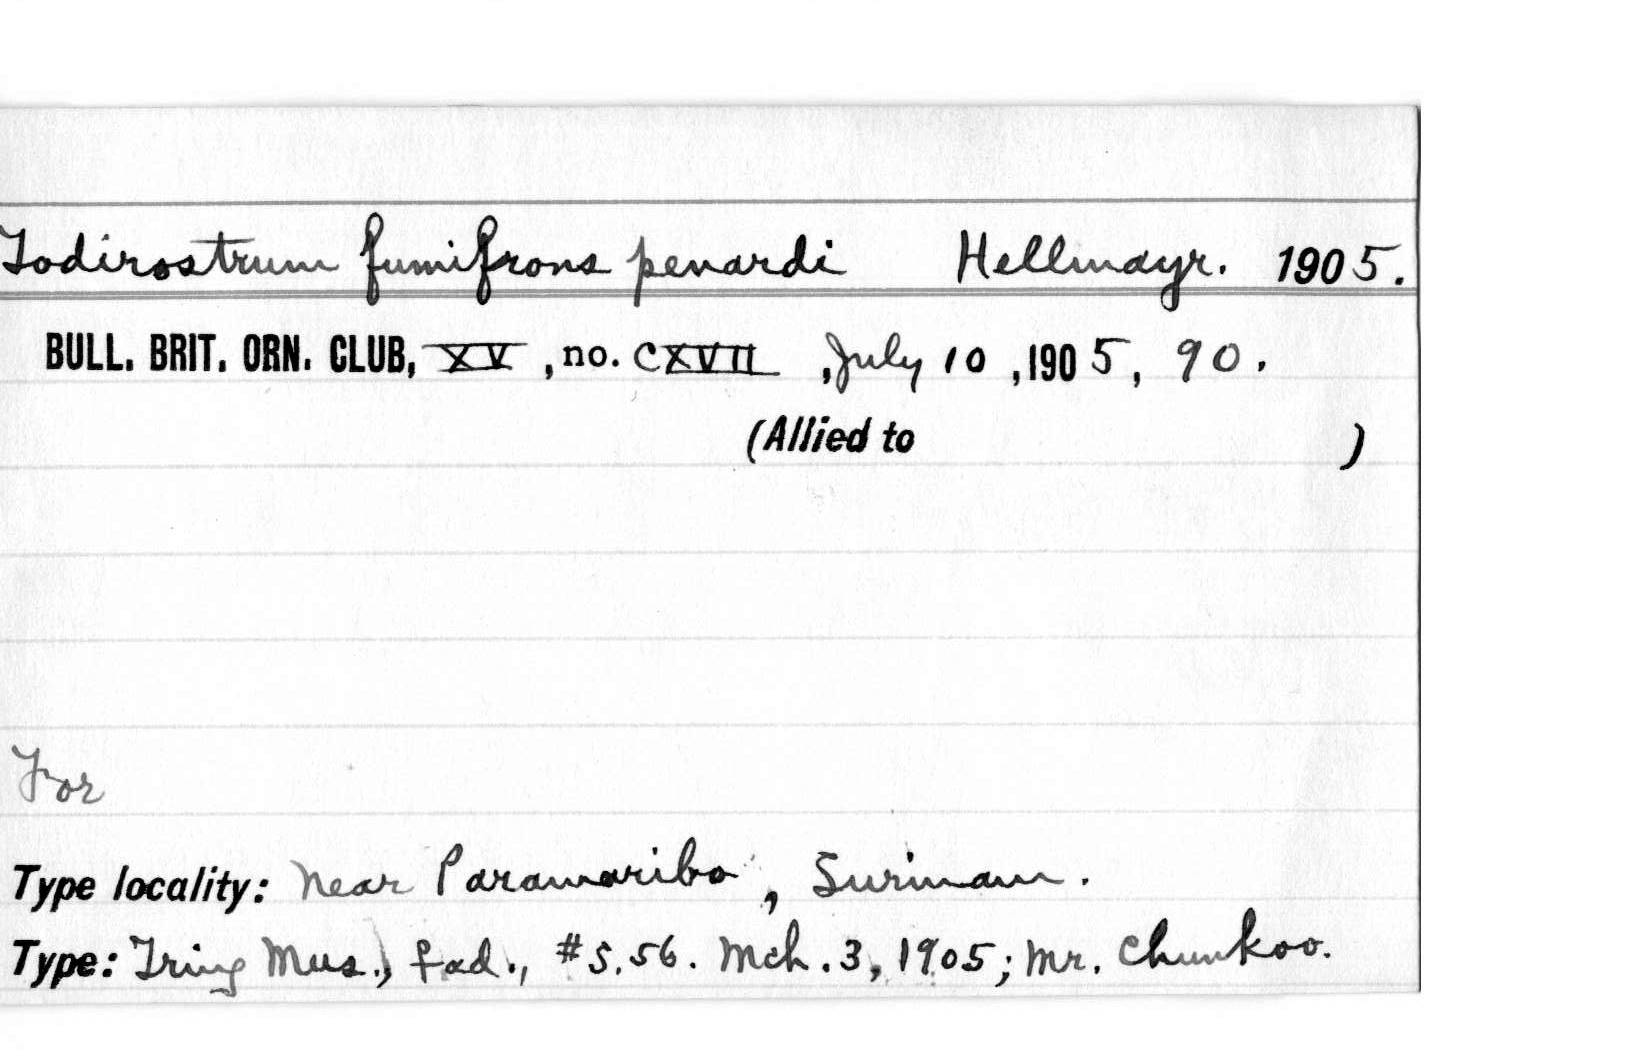 Todirostrum fumifrons penardi Hellmayr. 1905.
BULL. BRIT. ORN. CLUB, XV, no. CXVII, July 10, 1905, 90.
(Allied to )
For
Type locality: Near Paramaribo, Surinam.
Type: Tring Mus., ♀ad., #S.56. Mch. 3, 1905; Mr. Chunkoo.